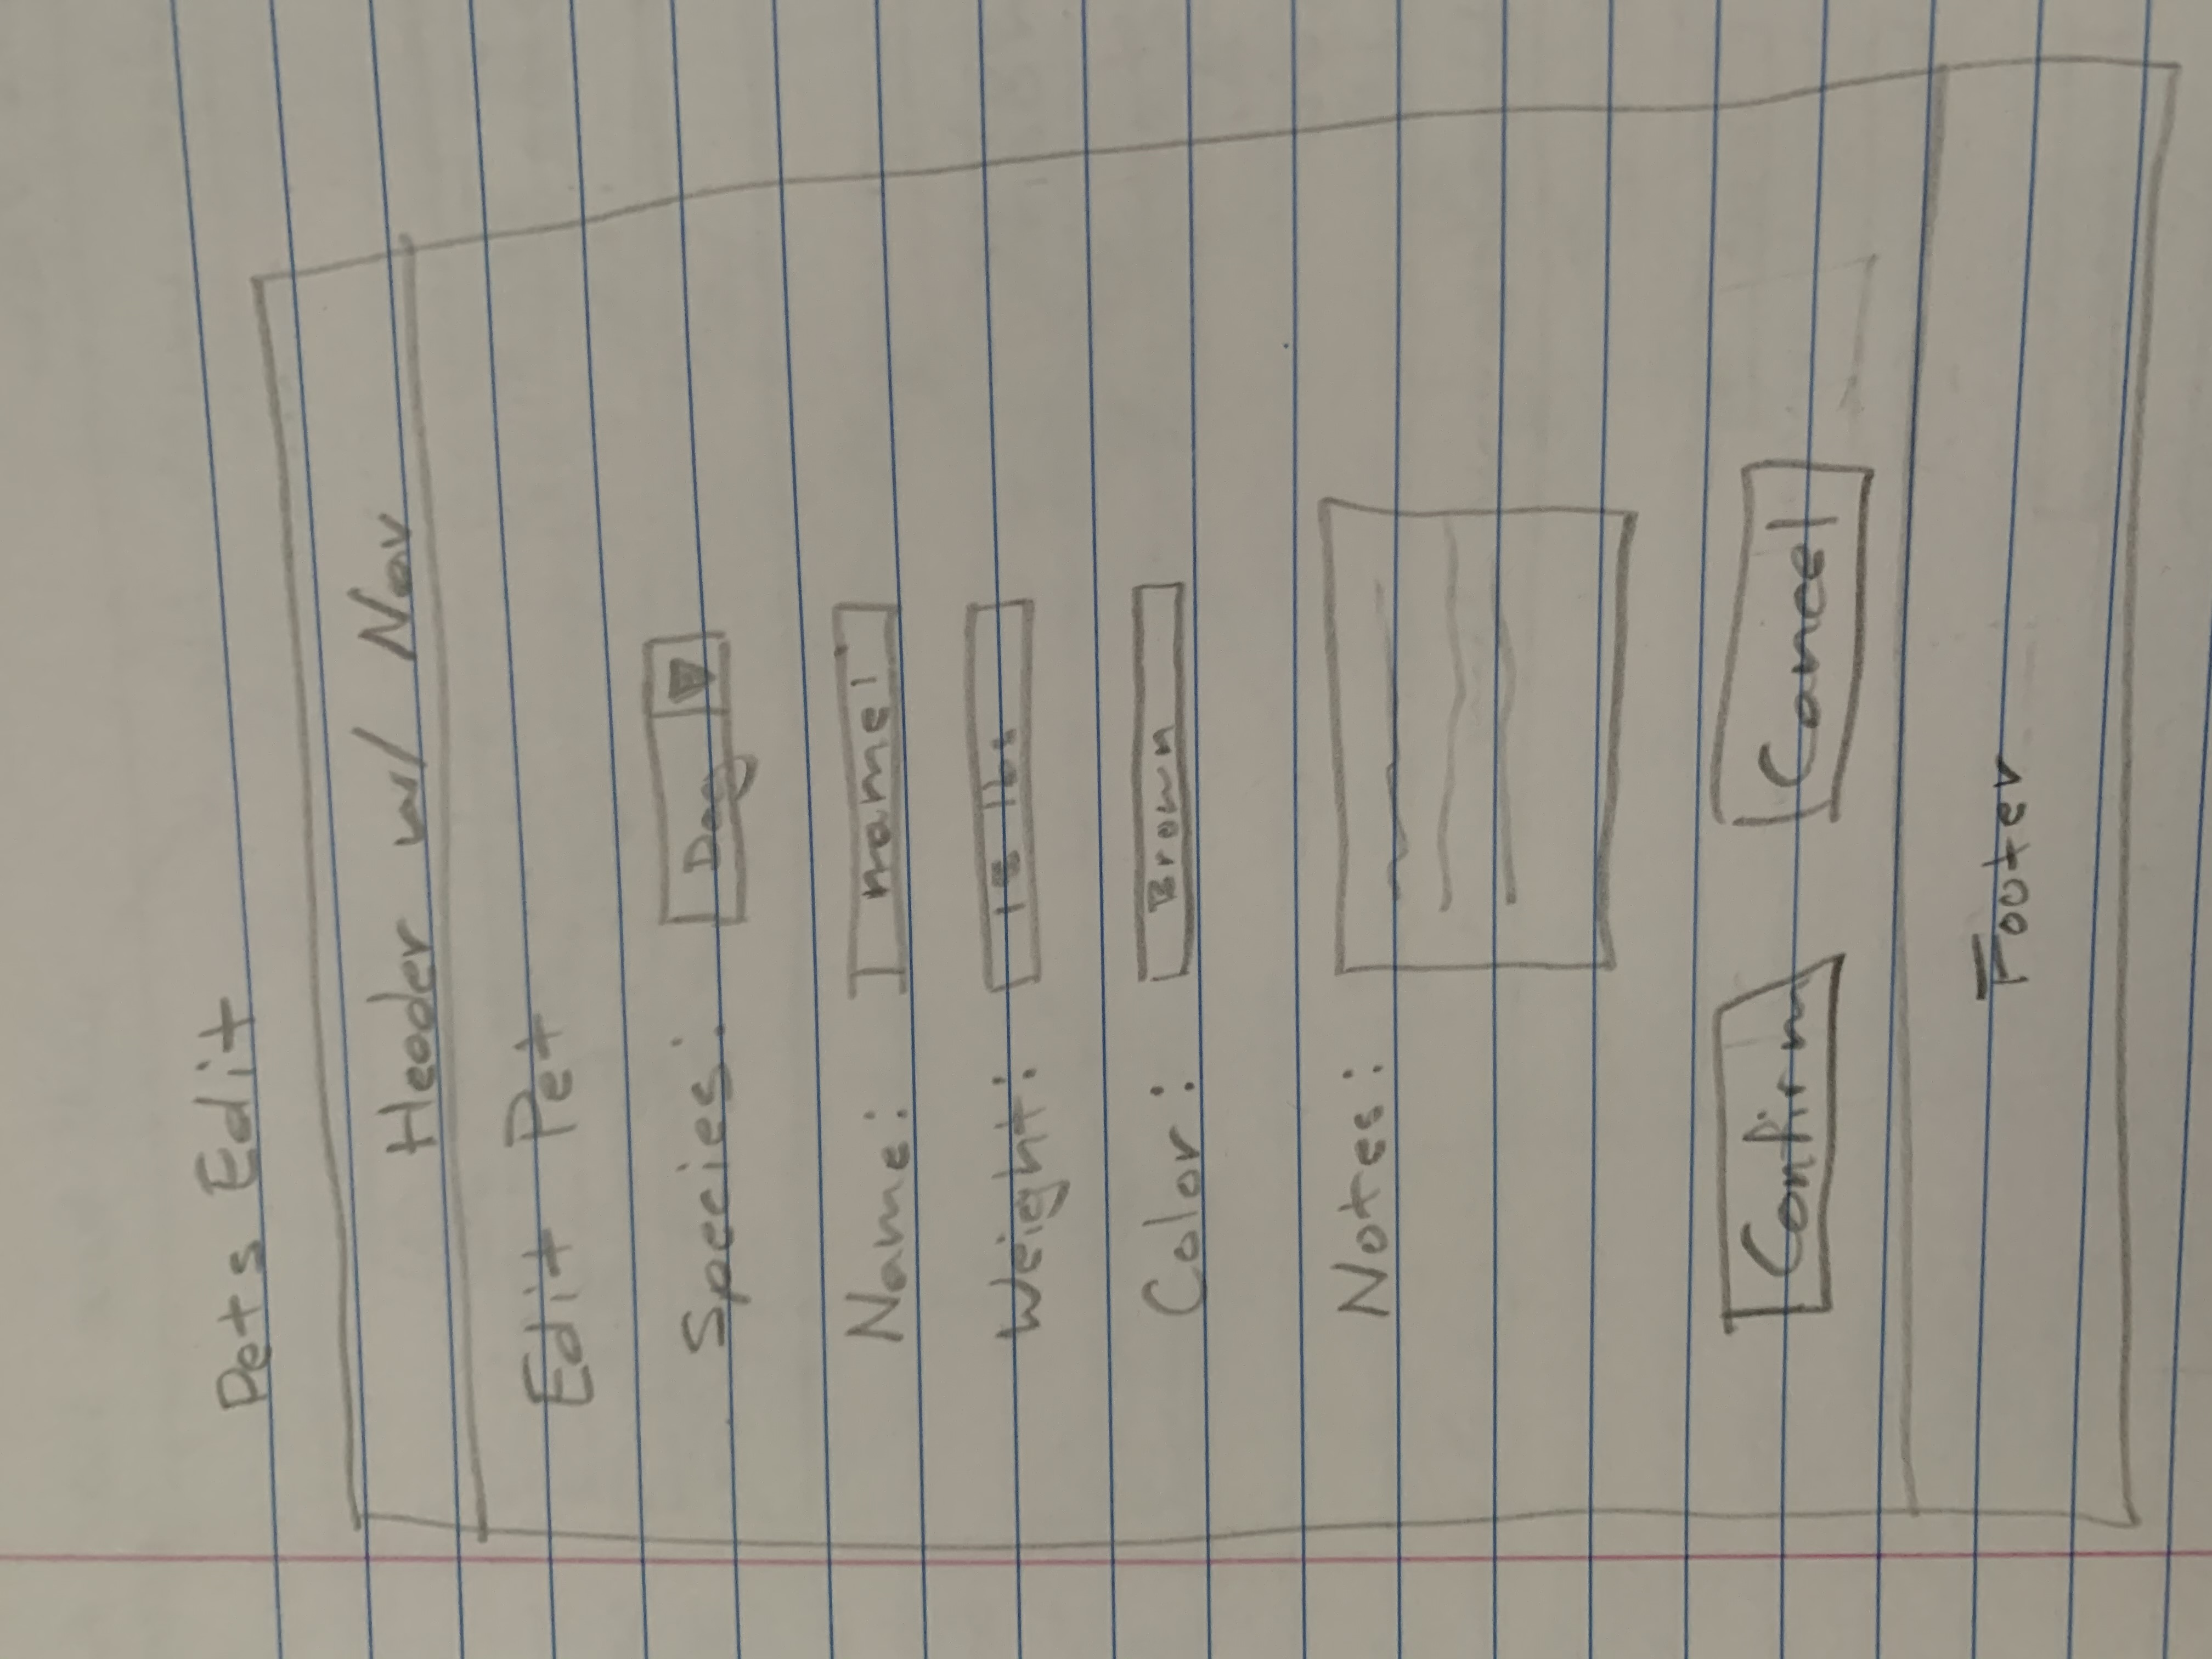 Pets Edit
Header w/ Nav
Edit Pet
Species: Dog
Name: name1
Weight: lbs
Color: Brown
Notes:
Confirm Cancel
Footer